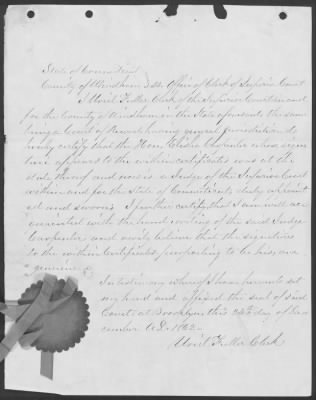 State of Connecticut
County of Windham } ss. Office of Clerk of Superior Court
I Uriel Fuller Clerk of the Superior Court in and
for the County of Windham in the State aforesaid, the same
being a Court of Record having general jurisdiction do
hereby certify that the Hon. Elisha Carpenter whose name
appears to the within certificate was at the
date thereof and now is a Judge of the Superior Court
within and for the State of Connecticut, duly
and sworn. I further certify that I am well ac-
quainted with the hand writing of the said Judge
Carpenter and verily believe that the signature
to the within Certificate purporting to be his, are
genuine
In testimony whereof I have hereunto set
my hand and affixed the seal of said
Court, at Brooklyn this 24th day of De
cember A.D. 1862.
Uriel Fuller Clerk